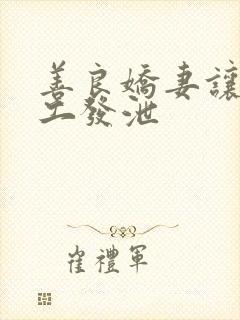 善良嬌妻讓
工發泄
崔禮軍